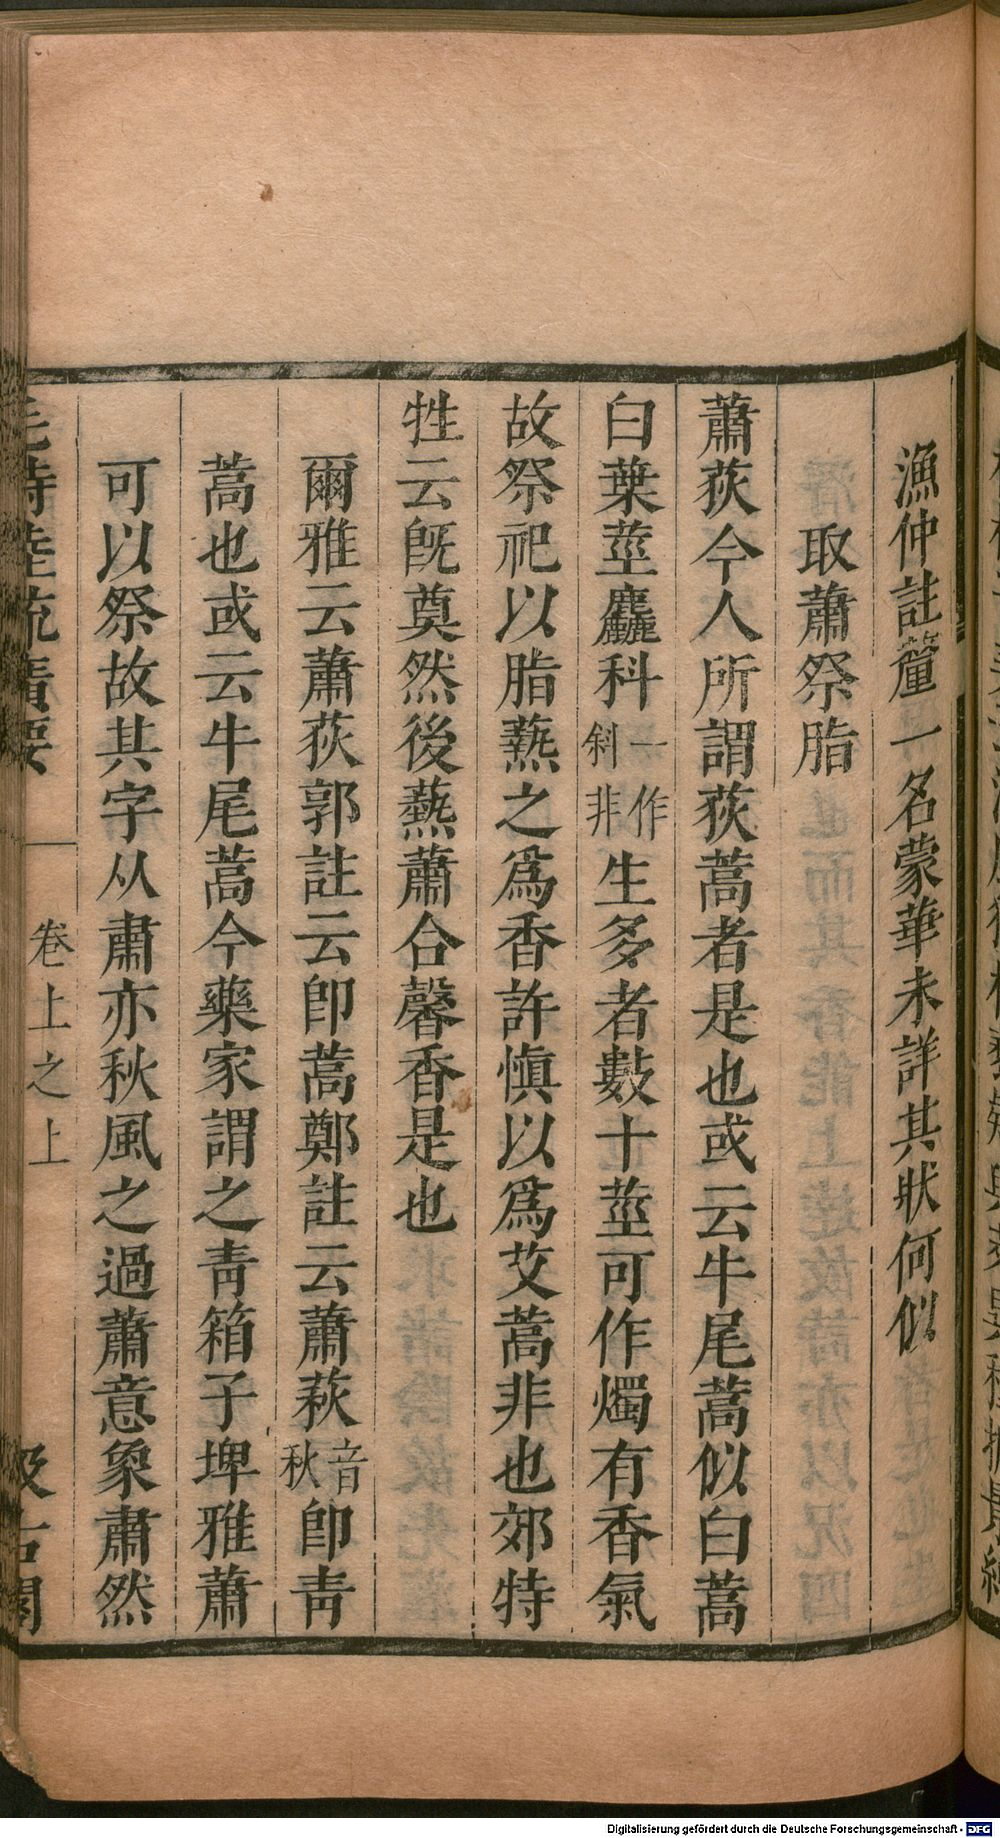 漁仲註虇一名蒙華未詳其狀何似
取蕭祭脂
蕭荻今人所謂荻蒿者是也或云牛尾蒿似白蒿
白葉莖麤科一作斜非生多者數十莖可作燭有香氣
故祭祀以脂爇之爲香許愼以爲艾蒿非也郊特
牲云旣奠然後爇蕭合馨香是也
爾雅云蕭荻郭註云卽蒿鄭註云蕭萩音秋卽靑
蒿也或云牛尾蒿今藥家謂之靑箱子埤雅蕭
可以祭故其字从肅亦秋風之過蕭意象肅然
毛詩陸疏廣要
卷上之上
汲古閣
Digitalisierung gefördert durch die Deutsche Forschungsgemeinschaft - DFG